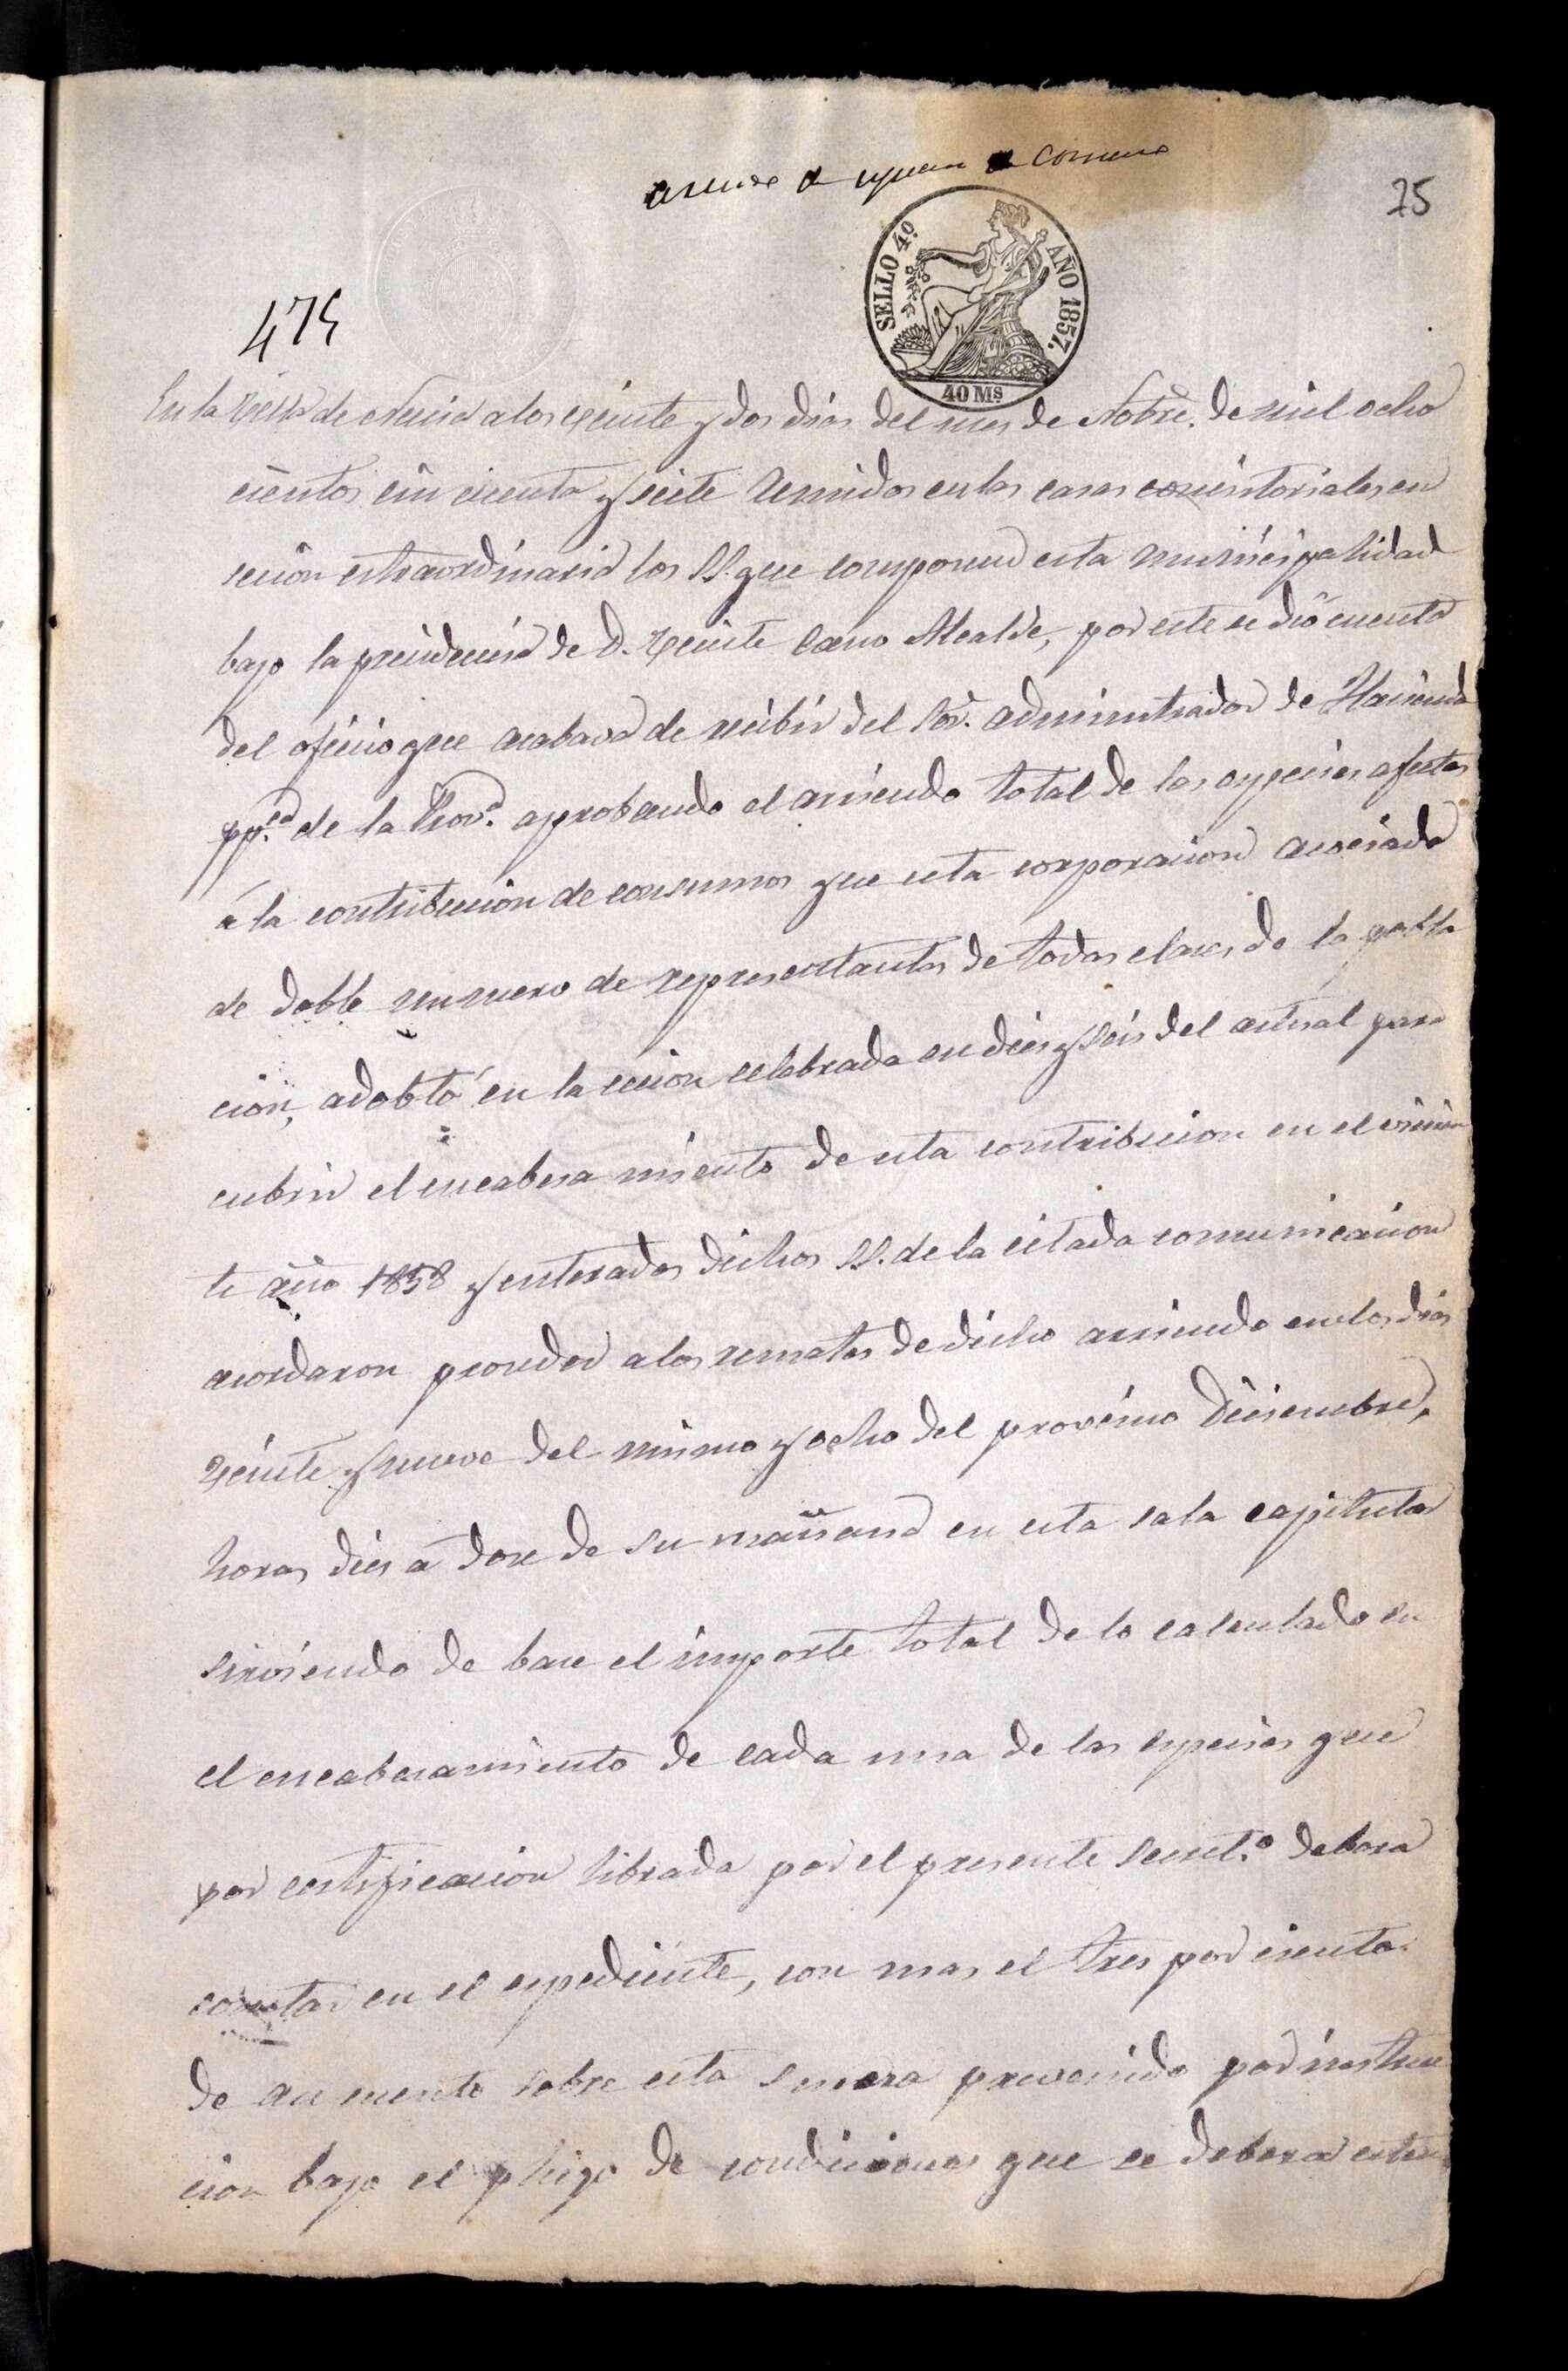 75
SELLO 4º AÑO 1857.
40 Ms
En la Villa de Nucia a los veinte y dos dias del mes de Nobre. de mil ocho
cientos cincuenta y siete reunidos en las casas consistoriales en
secion estraordinaria los SS. que componen esta municipalidad
bajo la presidencia de D. Vicente Cano Alcalde, por este se dió cuenta
del oficio que acabava de recibir del Sor. administrador de Hacienda
ppca. de la Prova. aprobando el arriendo total de las especies afectas
á la contribucion de consumos que esta corporacion asociada
de doble numero de representantes de todas clases de la pobla
cion, adobtó en la secion celebrada en dies y seis del actual para
cubrir el encabesamiento de esta contribucion en el vinien
te año 1858 y enterados dichos SS. de la citada comunicacion
acordaron proceder a los remates de dicho arriendo en los dias
veinte y nueve del mismo y ocho del proximo Diciembre,
horas dies á dose de su mañana en esta sala capitular
sirviendo de base el importe total de lo calculado en
el encabesamiento de cada una de las especies que
por certificacion librada por el presente Secreto. debera
constar en el espediente, con mas el tres por ciento
de aumento sobre esta suma prevenido por instruc
cion bajo el pliego de condiciones que se debera esten